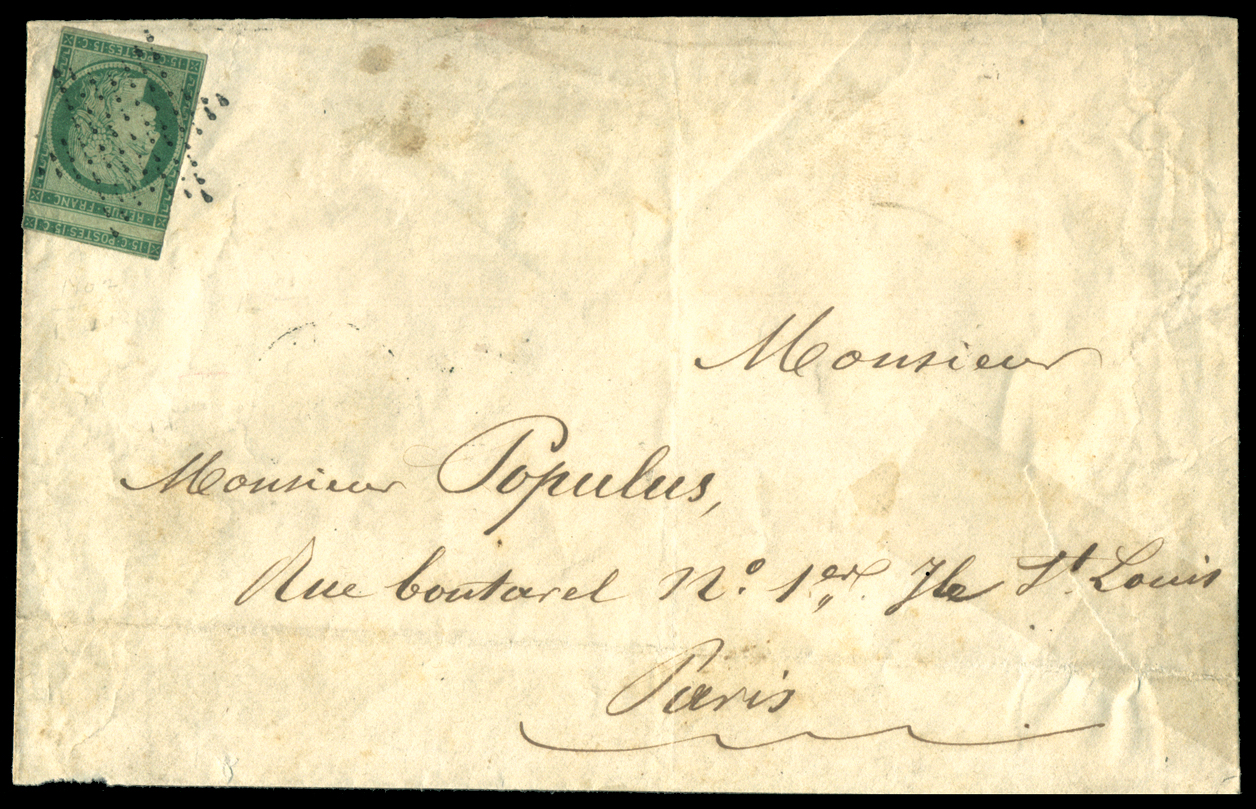 15·C·POSTES·15·C
REPUB·FRANC
15·C·POSTES·15·C
Monsieur
Monsieur Populus,
Rue boutarel N.º 1.er Ile St. Louis
Paris